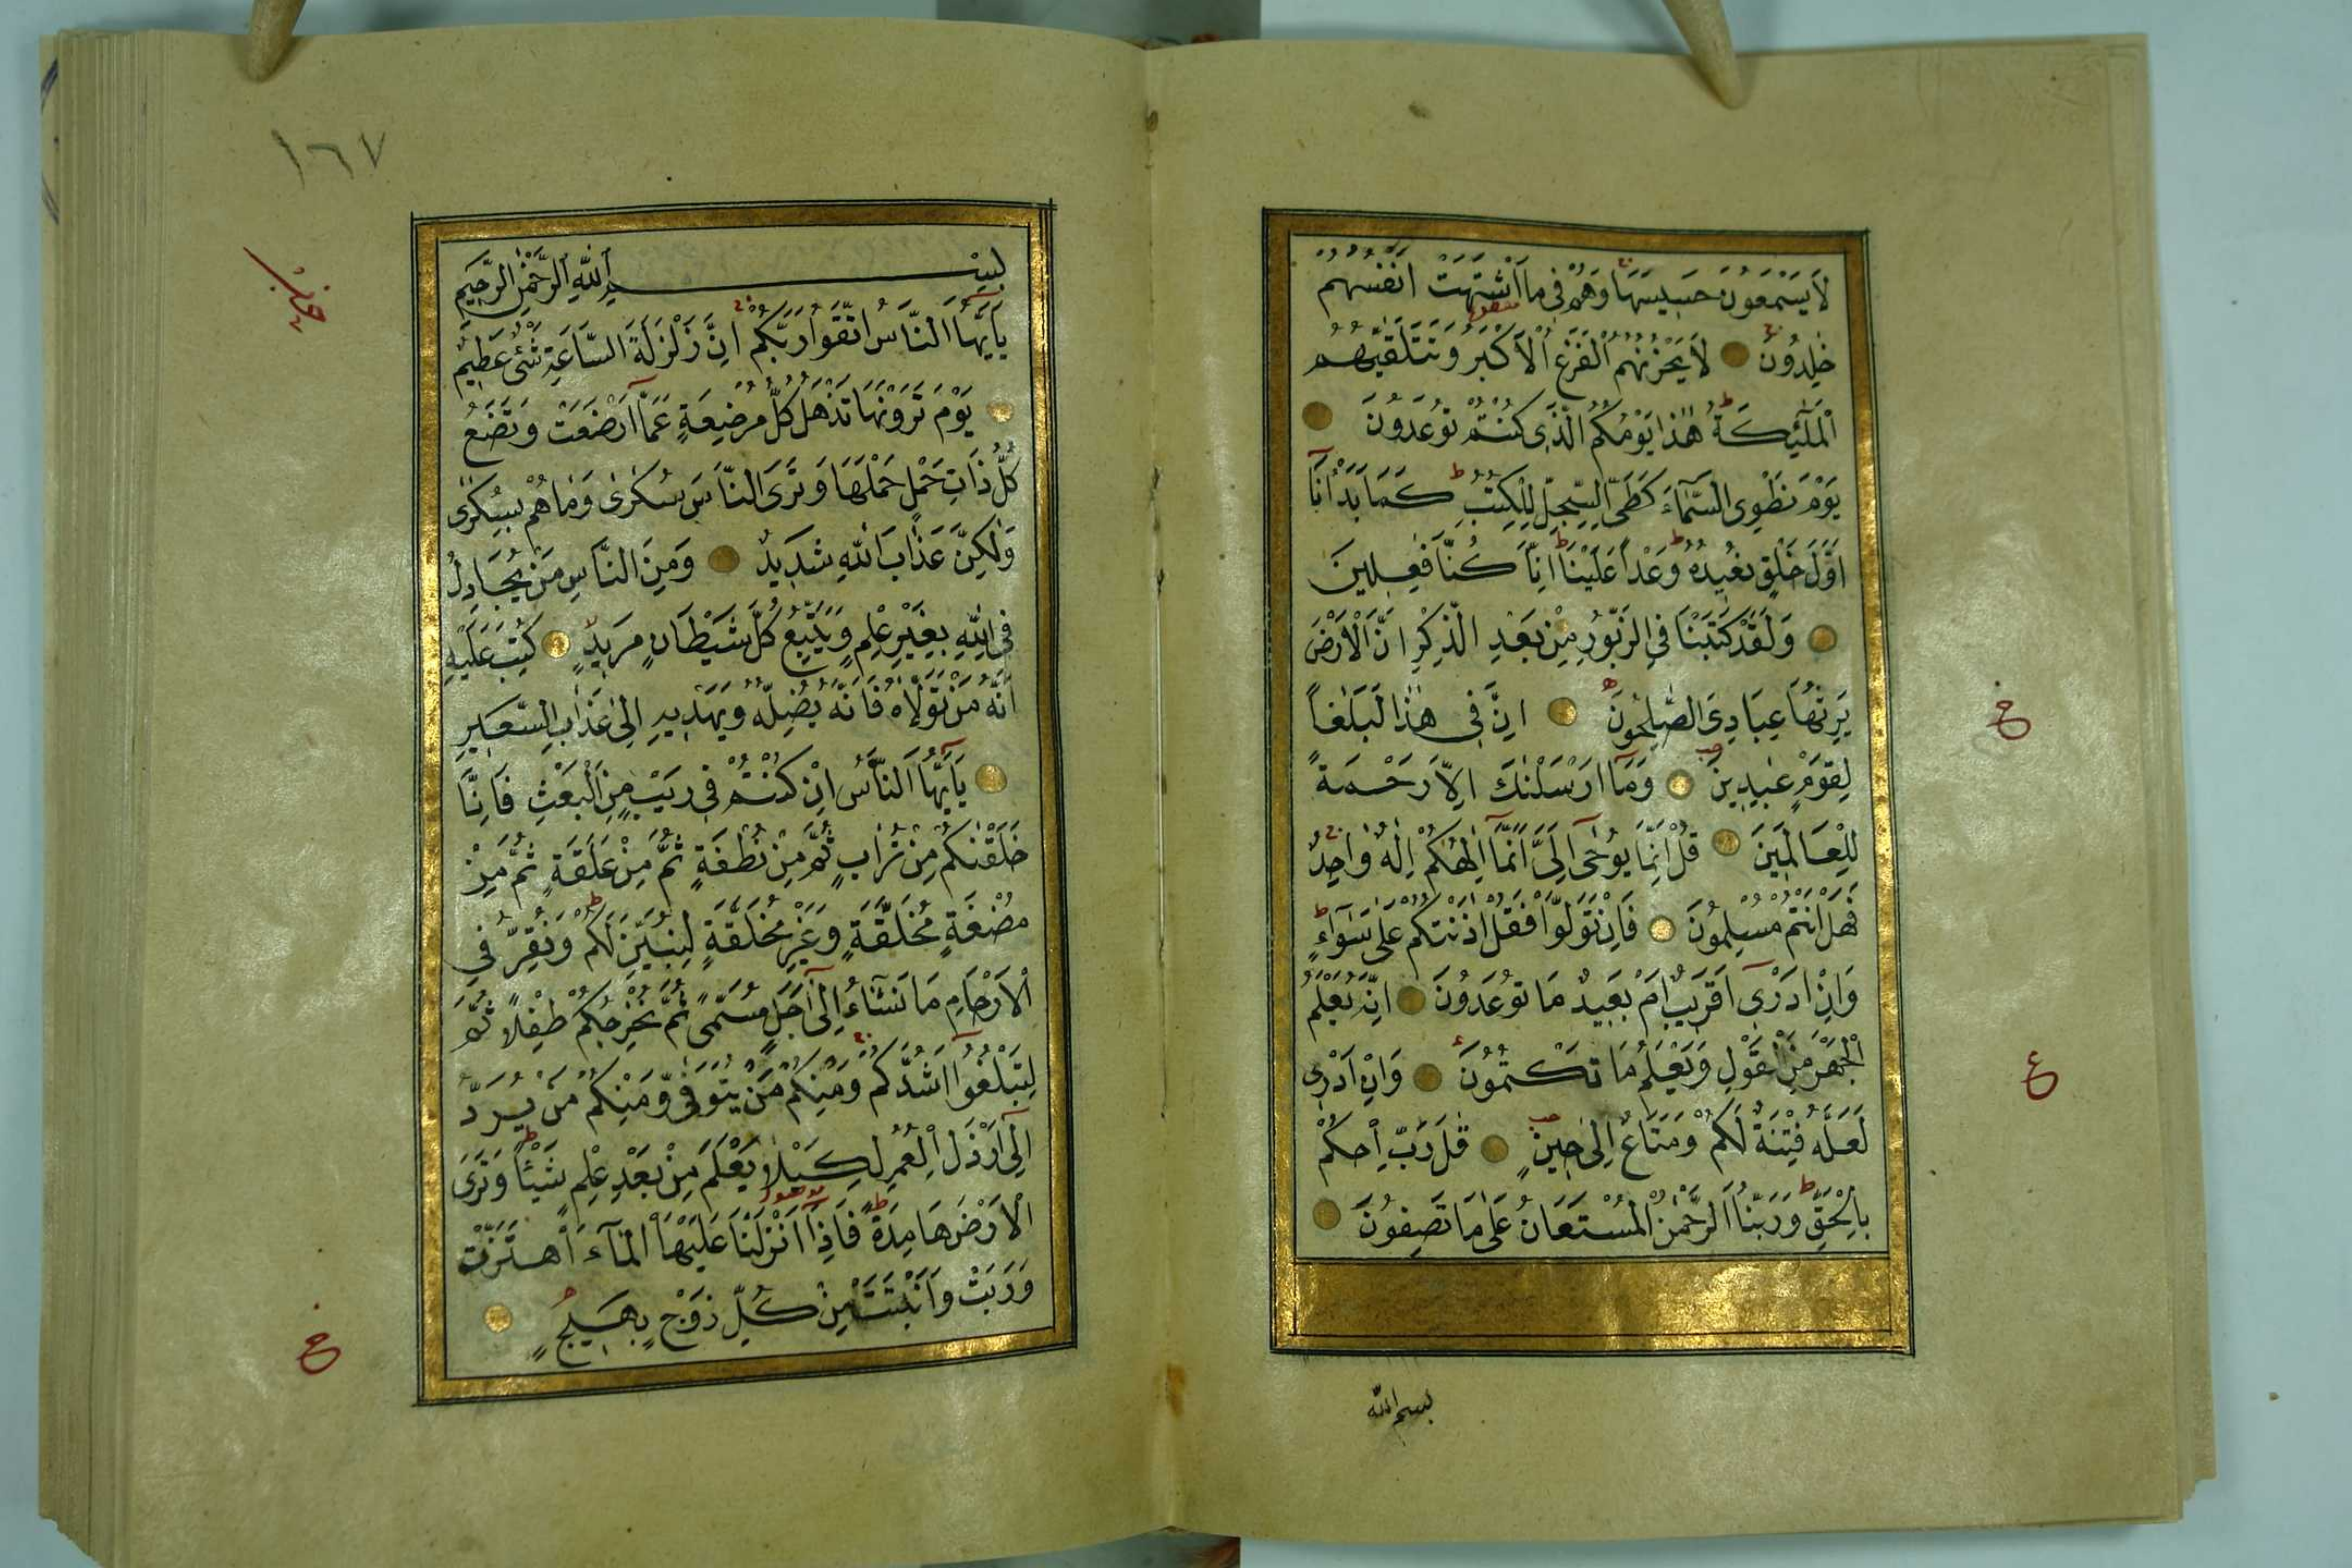 لَا يَسْمَعُونَ حَسِيسَهَا وَهُمْ فِى مَا اشْتَهَتْ اَنْفُسُهُمْ
خٰلِدُونَ لَا يَحْزُنُهُمُ الْفَزَعُ الْاَكْبَرُ وَتَتَلَقّٰيهُمُ
الْمَلٰٓئِكَةُ هٰذَا يَوْمُكُمُ الَّذِى كُنْتُمْ تُوعَدُونَ
يَوْمَ نَطْوِى السَّمَآءَ كَطَىِّ السِّجِلِّ لِلْكُتُبِ كَمَا بَدَاْنَآ
اَوَّلَ خَلْقٍ نُعِيدُهُ وَعْدًا عَلَيْنَا اِنَّا كُنَّا فٰعِلِينَ
وَلَقَدْ كَتَبْنَا فِى الزَّبُورِ مِنْ بَعْدِ الذِّكْرِ اَنَّ الْاَرْضَ
يَرِثُهَا عِبَادِىَ الصّٰلِحُونَ اِنَّ فِى هٰذَا لَبَلٰغًا
لِقَوْمٍ عٰبِدِينَ وَمَآ اَرْسَلْنٰكَ اِلَّا رَحْمَةً
لِلْعَالَمِينَ قُلْ اِنَّمَا يُوحٰٓى اِلَىَّ اَنَّمَآ اِلٰهُكُمْ اِلٰهٌ وَاحِدٌ
فَهَلْ اَنْتُمْ مُسْلِمُونَ فَاِنْ تَوَلَّوْا فَقُلْ اٰذَنْتُكُمْ عَلٰى سَوَآءٍ
وَاِنْ اَدْرِىٓ اَقَرِيبٌ اَمْ بَعِيدٌ مَا تُوعَدُونَ اِنَّهُ يَعْلَمُ
الْجَهْرَ مِنَ الْقَوْلِ وَيَعْلَمُ مَا تَكْتُمُونَ وَاِنْ اَدْرِى
لَعَلَّهُ فِتْنَةٌ لَكُمْ وَمَتَاعٌ اِلٰى حِينٍ قٰلَ رَبِّ احْكُمْ
بِالْحَقِّ وَرَبُّنَا الرَّحْمٰنُ الْمُسْتَعَانُ عَلٰى مَا تَصِفُونَ
بسم الله
خ
ع
١٦٧
بِسْمِ اللّٰهِ الرَّحْمٰنِ الرَّحِيمِ
يَآ اَيُّهَا النَّاسُ اتَّقُوا رَبَّكُمْ اِنَّ زَلْزَلَةَ السَّاعَةِ شَىْءٌ عَظِيمٌ
يَوْمَ تَرَوْنَهَا تَذْهَلُ كُلُّ مُرْضِعَةٍ عَمَّآ اَرْضَعَتْ وَتَضَعُ
كُلُّ ذَاتِ حَمْلٍ حَمْلَهَا وَتَرَى النَّاسَ سُكٰرٰى وَمَا هُمْ بِسُكٰرٰى
وَلٰكِنَّ عَذَابَ اللّٰهِ شَدِيدٌ وَمِنَ النَّاسِ مَنْ يُجَادِلُ
فِى اللّٰهِ بِغَيْرِ عِلْمٍ وَيَتَّبِعُ كُلَّ شَيْطَانٍ مَرِيدٍ كُتِبَ عَلَيْهِ
اَنَّهُ مَنْ تَوَلَّاهُ فَاَنَّهُ يُضِلُّهُ وَيَهْدِيهِ اِلٰى عَذَابِ السَّعِيرِ
يَآ اَيُّهَا النَّاسُ اِنْ كُنْتُمْ فِى رَيْبٍ مِنَ الْبَعْثِ فَاِنَّا
خَلَقْنٰكُمْ مِنْ تُرَابٍ ثُمَّ مِنْ نُطْفَةٍ ثُمَّ مِنْ عَلَقَةٍ ثُمَّ مِنْ
مُضْغَةٍ مُخَلَّقَةٍ وَغَيْرِ مُخَلَّقَةٍ لِنُبَيِّنَ لَكُمْ وَنُقِرُّ فِى
الْاَرْحَامِ مَا نَشَآءُ اِلٰٓى اَجَلٍ مُسَمًّى ثُمَّ نُخْرِجُكُمْ طِفْلًا ثُمَّ
لِتَبْلُغُوٓا اَشُدَّكُمْ وَمِنْكُمْ مَنْ يُتَوَفّٰى وَمِنْكُمْ مَنْ يُرَدُّ
اِلٰٓى اَرْذَلِ الْعُمُرِ لِكَيْلَا يَعْلَمَ مِنْ بَعْدِ عِلْمٍ شَيْئًا وَتَرَى
الْاَرْضَ هَامِدَةً فَاِذَآ اَنْزَلْنَا عَلَيْهَا الْمَآءَ اهْتَزَّتْ
وَرَبَتْ وَاَنْبَتَتْ مِنْ كُلِّ زَوْجٍ بَهِيجٍ
خ